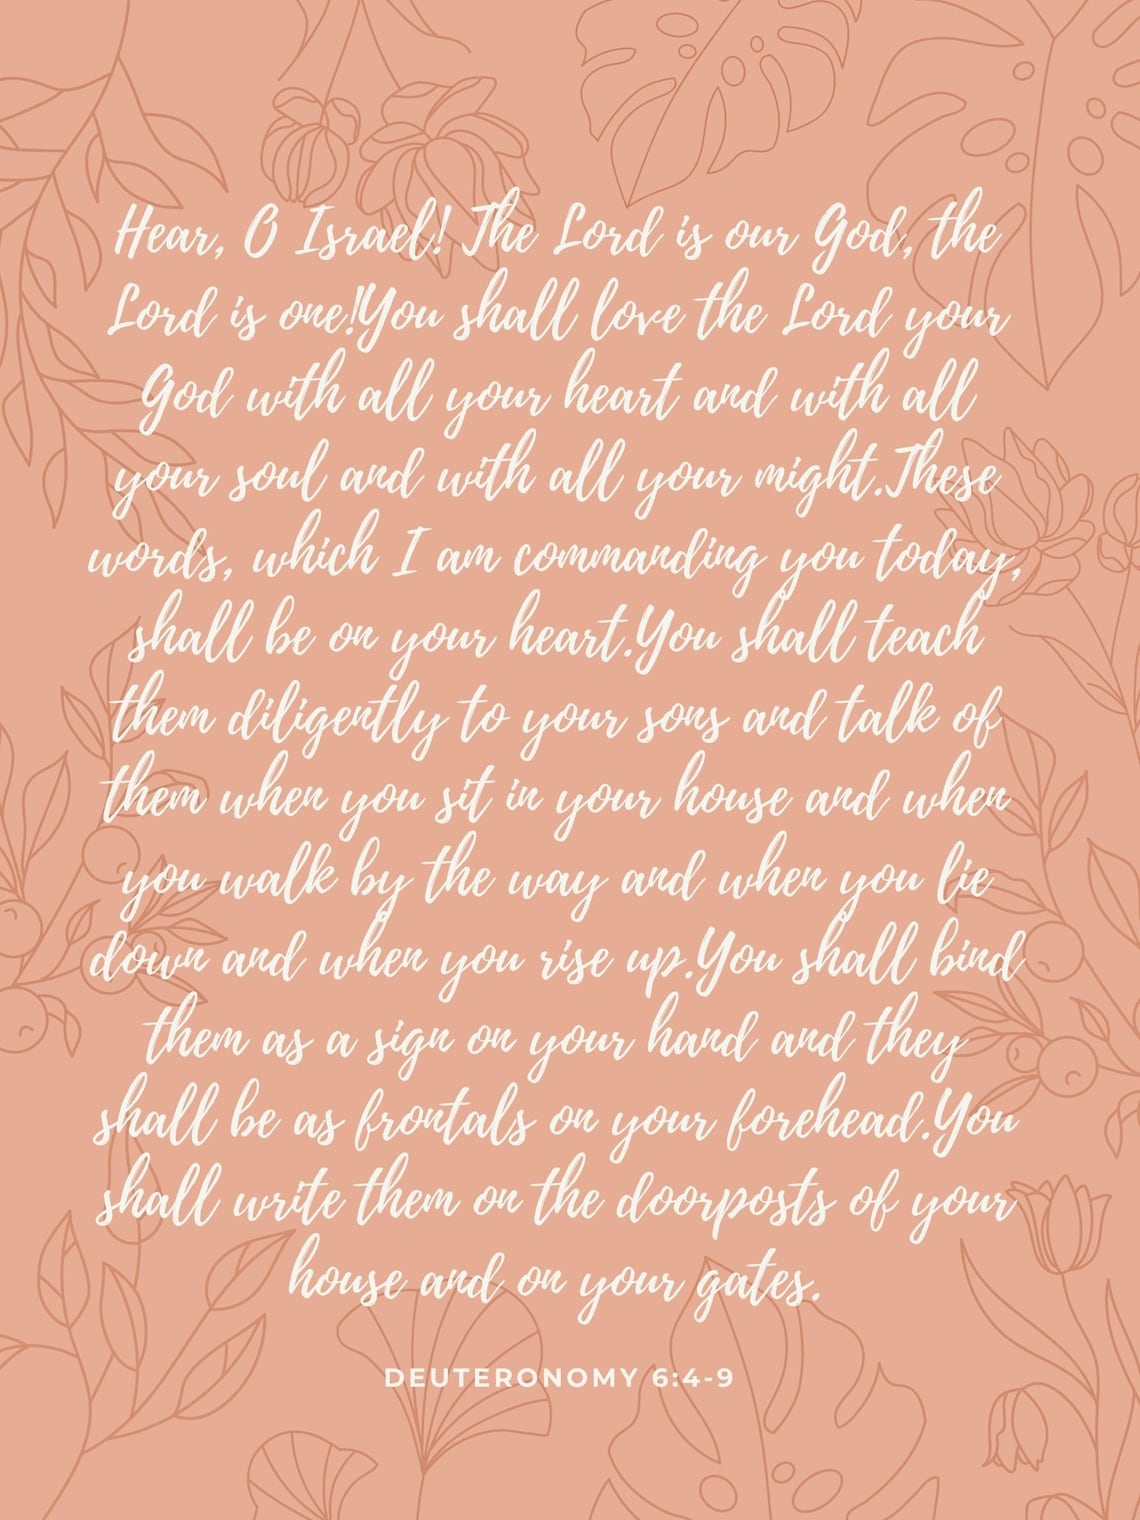 Hear, O Israel! The Lord is our God, the
Lord is one!You shall love the Lord your
God with all your heart and with all
your soul and with all your might.These
words, which I am commanding you today,
shall be on your heart.You shall teach
them diligently to your sons and talk of
them when you sit in your house and when
you walk by the way and when you lie
down and when you rise up.You shall bind
them as a sign on your hand and they
shall be as frontals on your forehead.You
shall write them on the doorposts of your
house and on your gates.
DEUTERONOMY 6:4-9